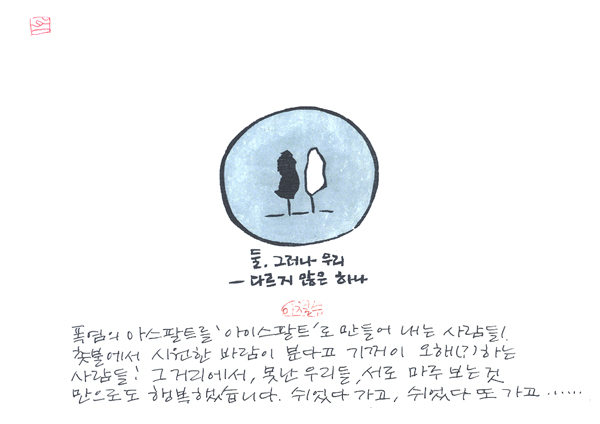 둘. 그러나 우리
― 다르지 않은 하나
이철수
폭염의 아스팔트를 '아이스팔트'로 만들어 내는 사람들!
촛불에서 시원한 바람이 분다고 기꺼이 오해(?)하는
사람들! 그 거리에서, 못난 우리들, 서로 마주 보는 것
만으로도 행복했습니다. 쉬었다 가고, 쉬었다 또 가고……